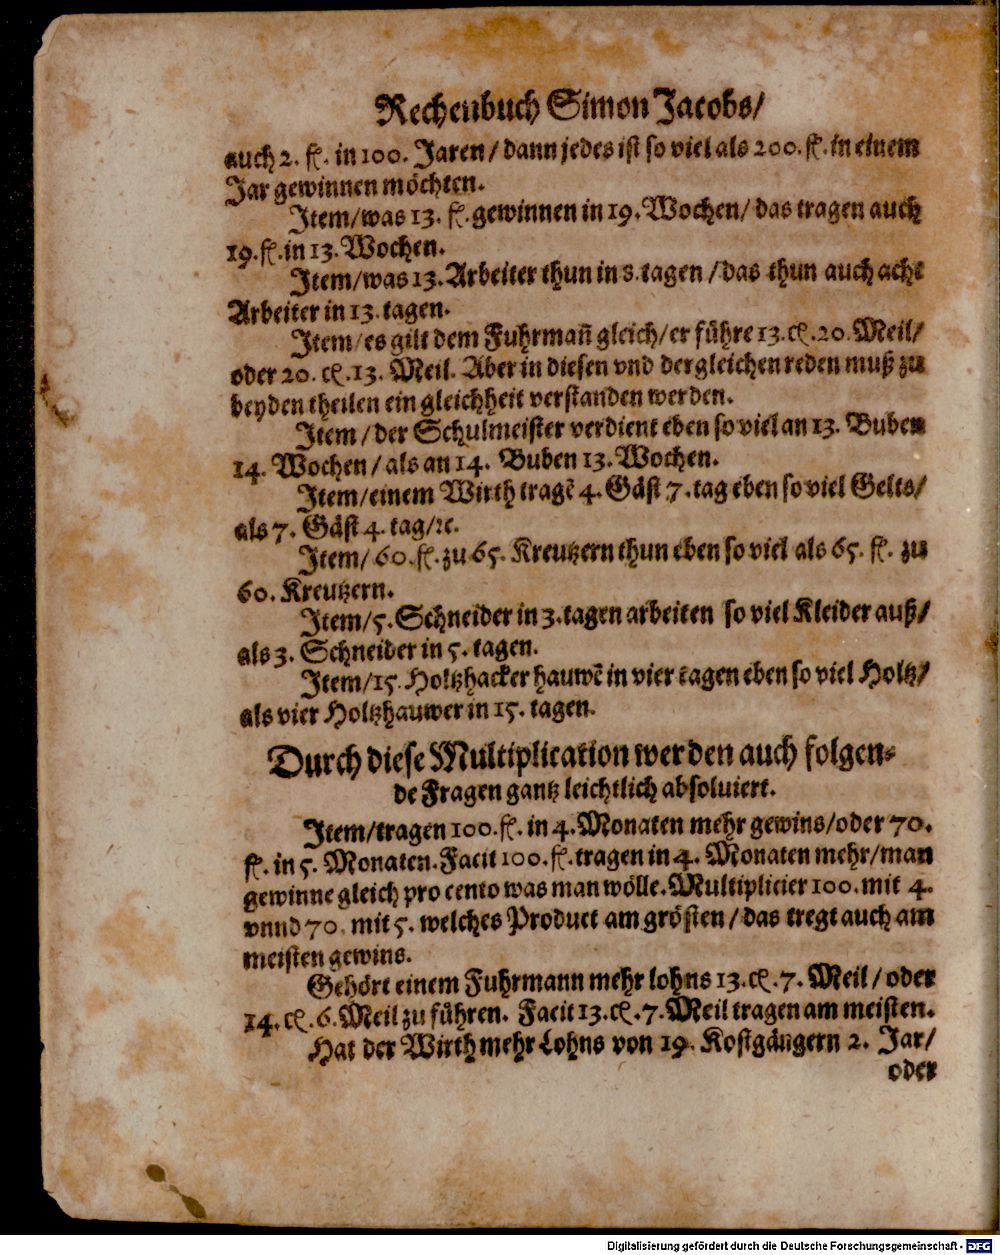 Rechenbuch Simon Jacobs/
auch 2. fl. in 100. Jaren / dann jedes ist so viel als 200. fl. in einem
Jar gewinnen möchten.
Item/was 13. fl. gewinnen in 19. Wochen/ das tragen auch
19. fl. in 13. Wochen.
Item/was 13. Arbeiter thun in 8. tagen / das thun auch acht
Arbeiter in 13. tagen.
Item/es gilt dem Fuhrmañ gleich/er führe 13. cℓ. 20. Meil/
oder 20. cℓ. 13. Meil. Aber in diesen vnd dergleichen reden muß zu
beyden theilen ein gleichheit verstanden werden.
Item / der Schulmeister verdient eben so viel an 13. Buben
14. Wochen / als an 14. Buben 13. Wochen.
Item/einem Wirth tragẽ 4. Gäst 7. tag eben so viel Gelts/
als 7. Gäst 4. tag/ꝛc.
Item/ 60. fl. zu 65. Kreutzern thun eben so viel als 65. fl. zu
60. Kreutzern.
Item/5. Schneider in 3. tagen arbeiten so viel Kleider auß/
als 3. Schneider in 5. tagen.
Item/15. Holtzhacker hauwẽ in vier tagen eben so viel Holtz/
als vier Holtzhauwer in 15. tagen.
Durch diese Multiplication werden auch folgen⸗
de Fragen gantz leichtlich absoluiert.
Item/tragen 100. fl. in 4. Monaten mehr gewins/oder 70.
fl. in 5. Monaten. Facit 100. fl. tragen in 4. Monaten mehr/man
gewinne gleich pro cento was man wölle. Multiplicier 100. mit 4.
vnnd 70. mit 5. welches Product am grösten / das tregt auch am
meisten gewins.
Gehört einem Fuhrmann mehr lohns 13. cℓ. 7. Meil / oder
14. cℓ. 6. Meil zu führen. Facit 13. cℓ. 7. Meil tragen am meisten.
Hat der Wirth mehr Lohns von 19. Kostgängern 2. Jar/
oder
Digitalisierung gefördert durch die Deutsche Forschungsgemeinschaft - DFG